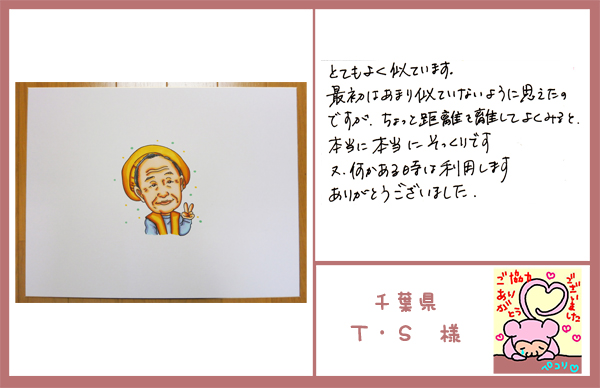 とてもよく似ています。
最初はあまり似ていないように思えたの
ですが、ちょっと距離を離してよくみると、
本当に本当にそっくりです
又、何かある時は利用します
ありがとうございました.
千葉県
T・S 様
ご協力
ありがとう
ございました
ペコリ